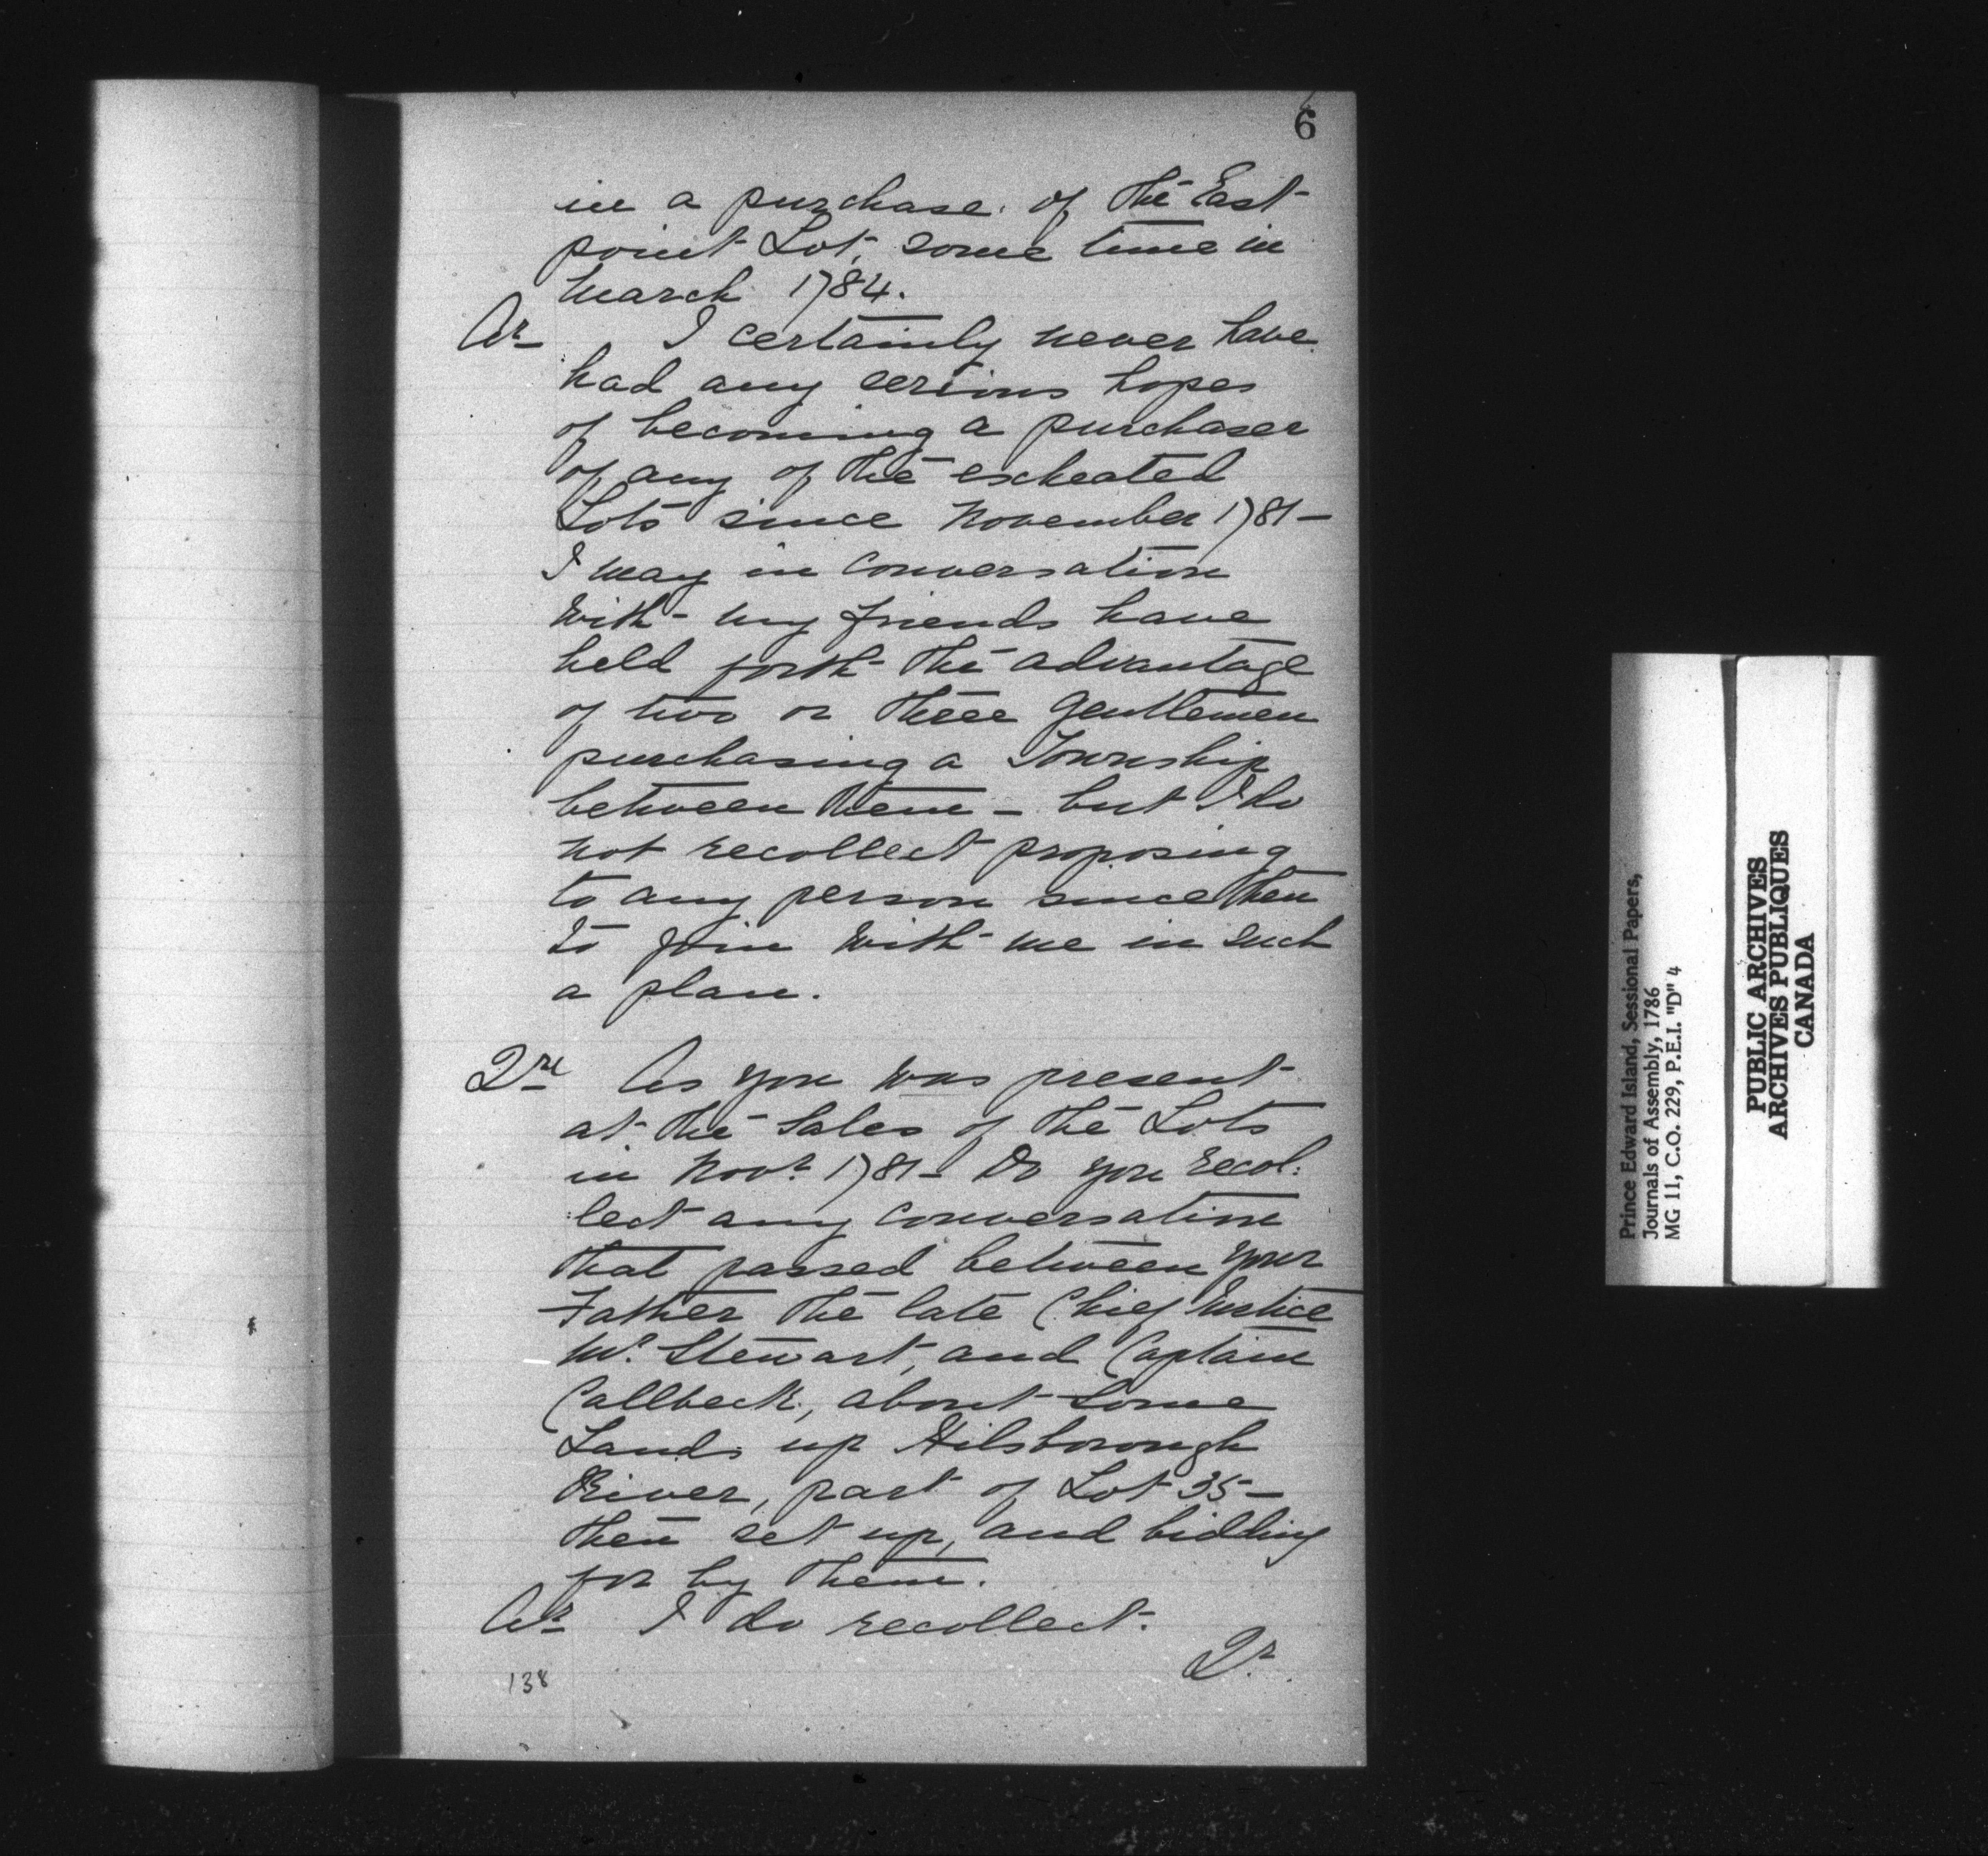 6
in a purchase of the East
point Lot, some time in
March 1784.
Ar I certainly never have
had any serious hopes
of becoming a purchaser
of any of the escheated
Lots since November 1781—
I may in conversation
with my friends have
held forth the advantage
of two or three Gentlemen
purchasing a Township
between them — but I do
not recollect proposing
to any person since then
to join with me in such
a plan.
Qre As you was present
at the Sales of the Lots
in Novr. 1781 — Do you recol:
:lect any conversation
that passed between your
Father the late Chief Justice
Mr. Stewart, and Captain
Callbeck, about some
Lands up Hilsborough
River, part of Lot 35 —
then set up, and bidding
for by them.
Ar I do recollect.
Qr.
138
Prince Edward Island, Sessional Papers,
Journals of Assembly, 1786
MG 11, C.O. 229, P.E.I. "D" 4
PUBLIC ARCHIVES
ARCHIVES PUBLIQUES
CANADA